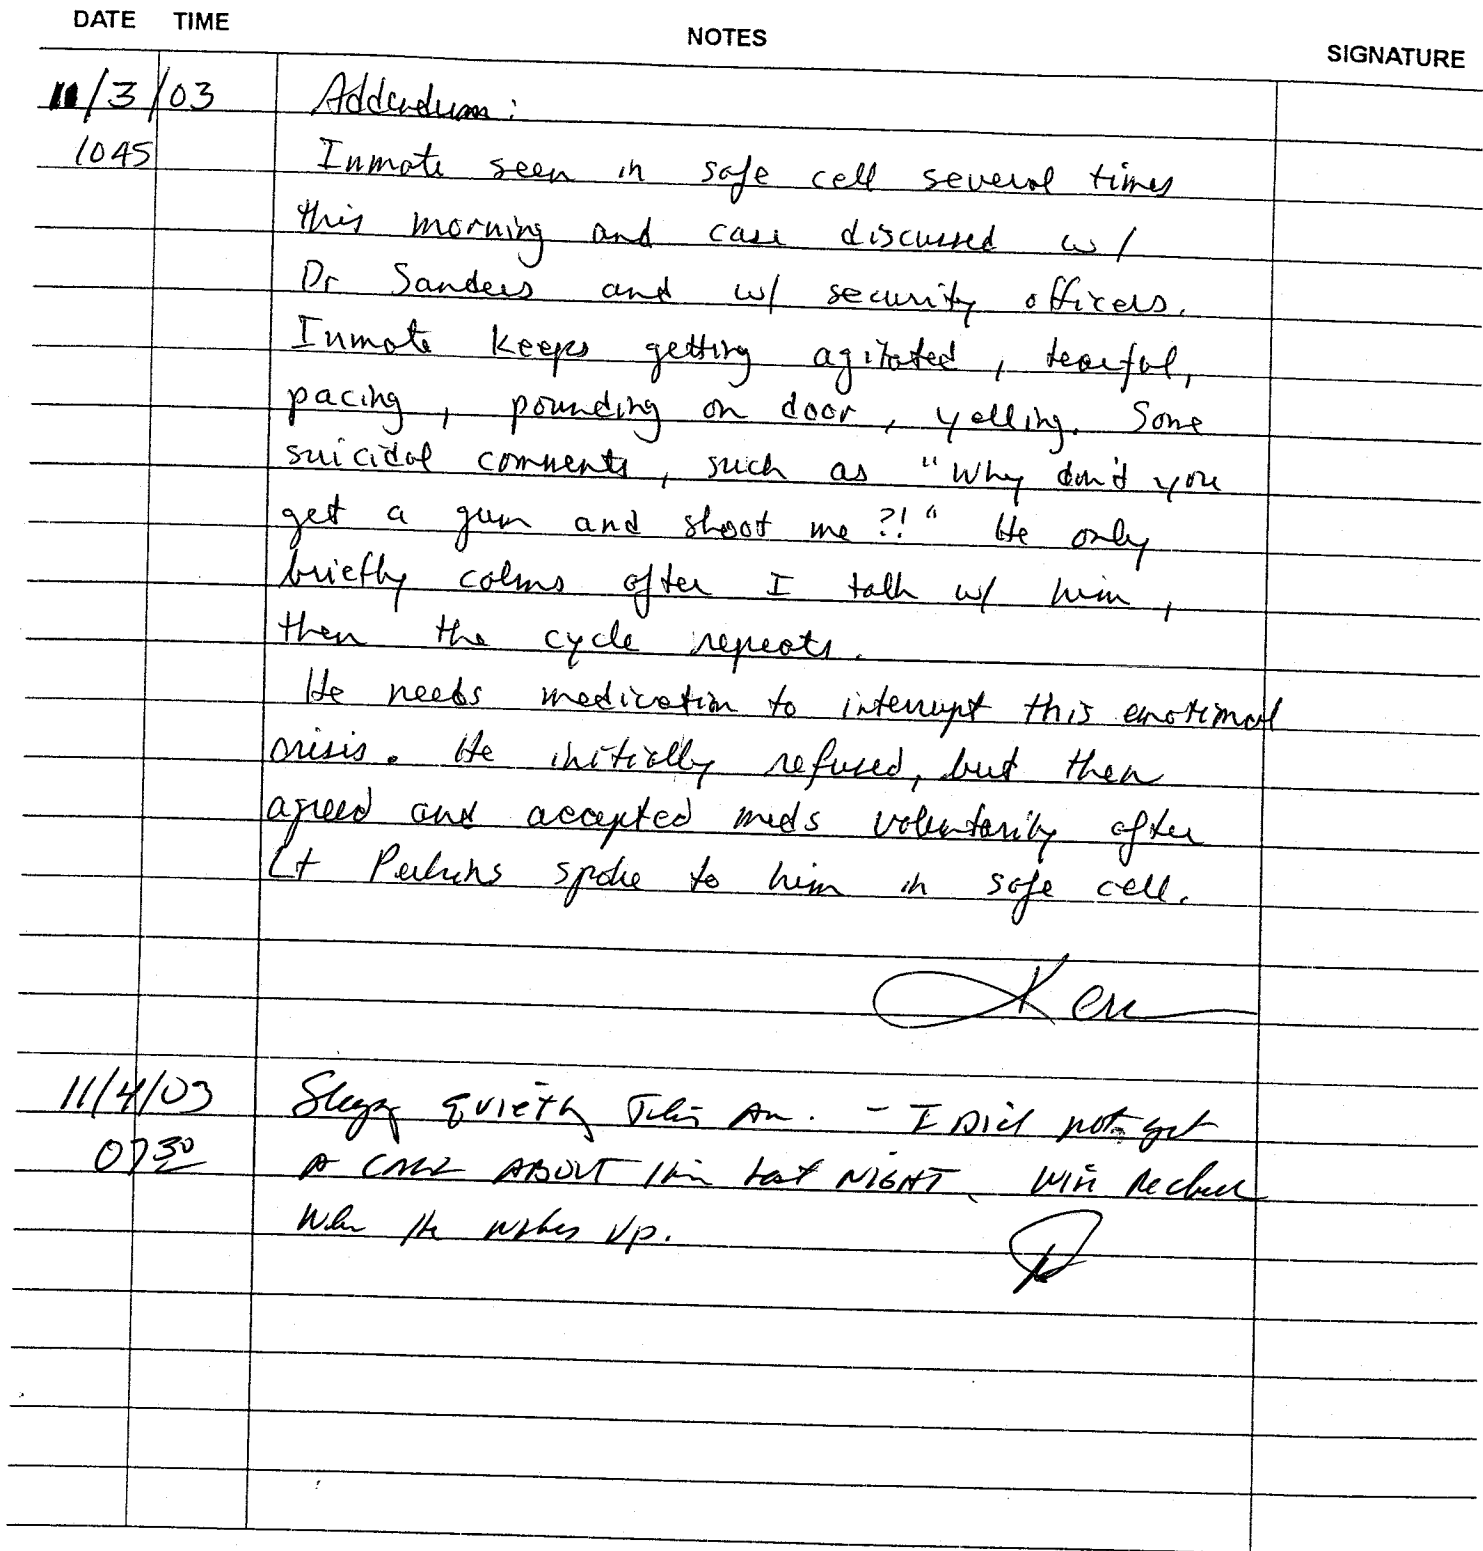 DATE TIME NOTES SIGNATURE
11/3/03 Addendum:
1045 Inmate seen in safe cell several times
this morning and case discussed w/
Dr Sanders and w/ security officers.
Inmate keeps getting agitated, tearful,
pacing, pounding on door, yelling. Some
suicidal comments, such as "Why don't you
get a gun and shoot me?!" He only
briefly calms after I talk w/ him,
then the cycle repeats.
He needs medication to interrupt this emotional
crisis. He initially refused, but then
agreed and accepted meds voluntarily after
Lt Perkins spoke to him in safe cell.
11/4/03 quietly This AM. - I Did not get
0730 A CALL ABOUT Him last NIGHT. Will Recheck
When He wakes Up.